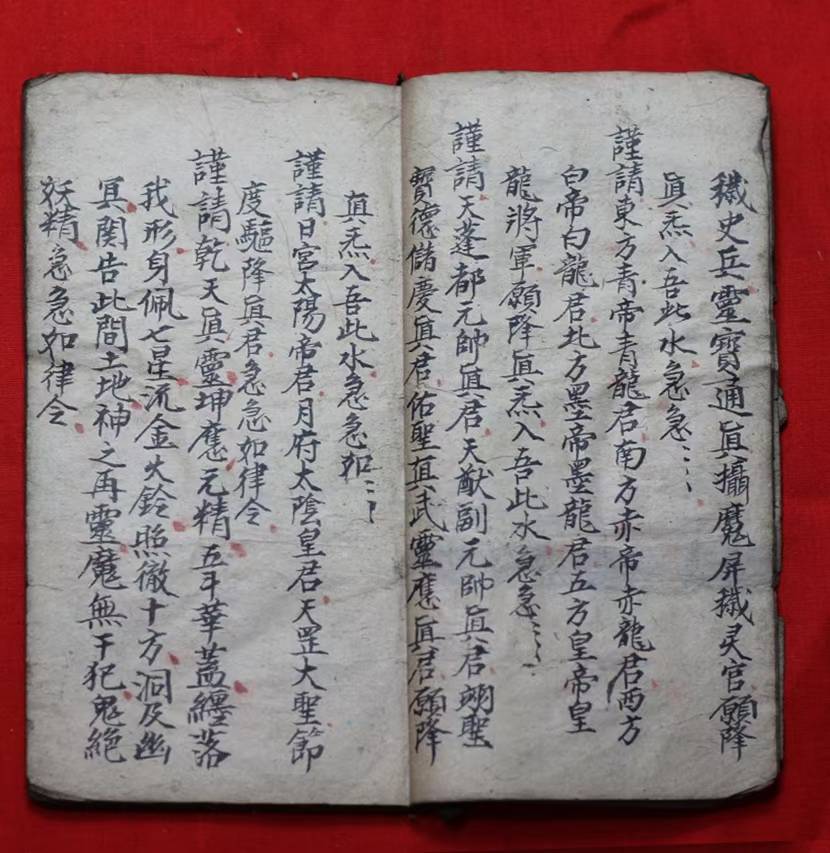 穢史兵靈寶通眞攝魔屏穢灵官願降
眞炁入吾此水急急
謹請東方青帝青龍君南方赤帝赤龍君西方
白帝白龍君北方墨帝墨龍君五方皇帝皇
龍將軍願降眞炁入吾此水急急
謹請天蓬都元帥眞君天猷副元帥眞君翊聖
寶德儲慶眞君佑聖眞武靈應眞君願降
眞炁入吾此水急急如
謹請日宮太陽帝君月府太陰皇君天罡大聖節
度驅降眞君急急如律令
謹請乾天眞靈坤應元精五斗華蓋纏落
我形身佩七星流金火鈴照徹十方洞及幽
冥関告此間土地神之再靈魔無干犯鬼絶
妖精急急如律令